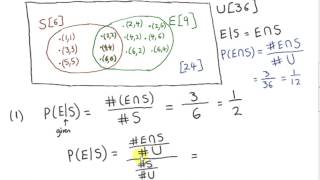 S[6] E[9] U[36]
·(1,1) ·(3,3) ·(5,5)
·(2,2) ·(4,4) ·(6,6)
·(2,4) ·(2,6)
·(4,2) ·(4,6)
·(6,2) ·(6,4)
[24]
E|S = E∩S
P(E∩S) = #E∩S / #U
= 3/36 = 1/12
(1) P(E|S) = #(E∩S) / #S = 3/6 = 1/2
given
P(E|S) = (#E∩S / #U) / (#S / #U) =